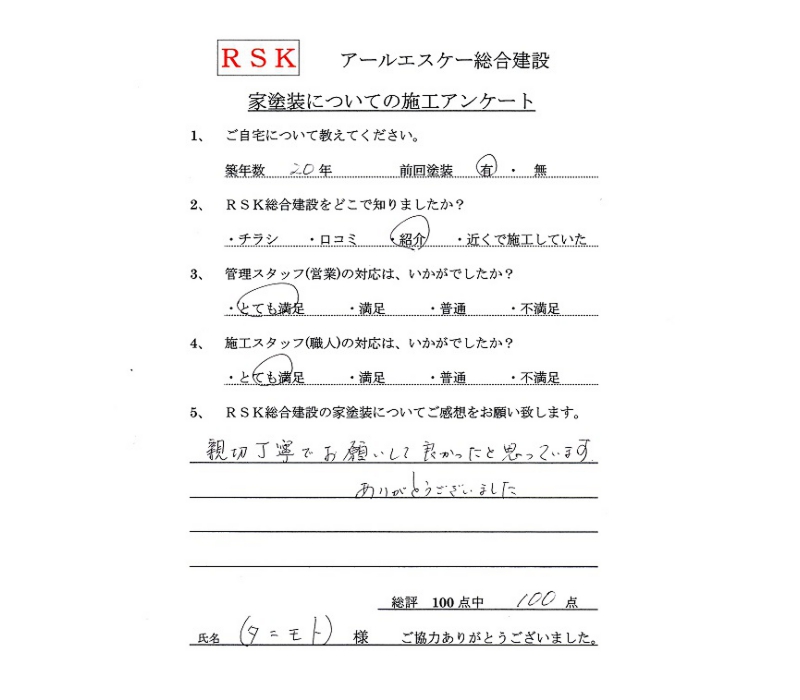 RSK アールエスケー総合建設
家塗装についての施工アンケート
1、 ご自宅について教えてください。
築年数 20年 前回塗装 有 ・ 無
2、 RSK総合建設をどこで知りましたか？
・チラシ ・口コミ ・紹介 ・近くで施工していた
3、 管理スタッフ(営業)の対応は、いかがでしたか？
・とても満足 ・満足 ・普通 ・不満足
4、 施工スタッフ(職人)の対応は、いかがでしたか？
・とても満足 ・満足 ・普通 ・不満足
5、 RSK総合建設の家塗装についてご感想をお願い致します。
親切丁寧でお願いして良かったと思っています
ありがとうございました
総評 100点中 100 点
氏名 (タニモト) 様 ご協力ありがとうございました。